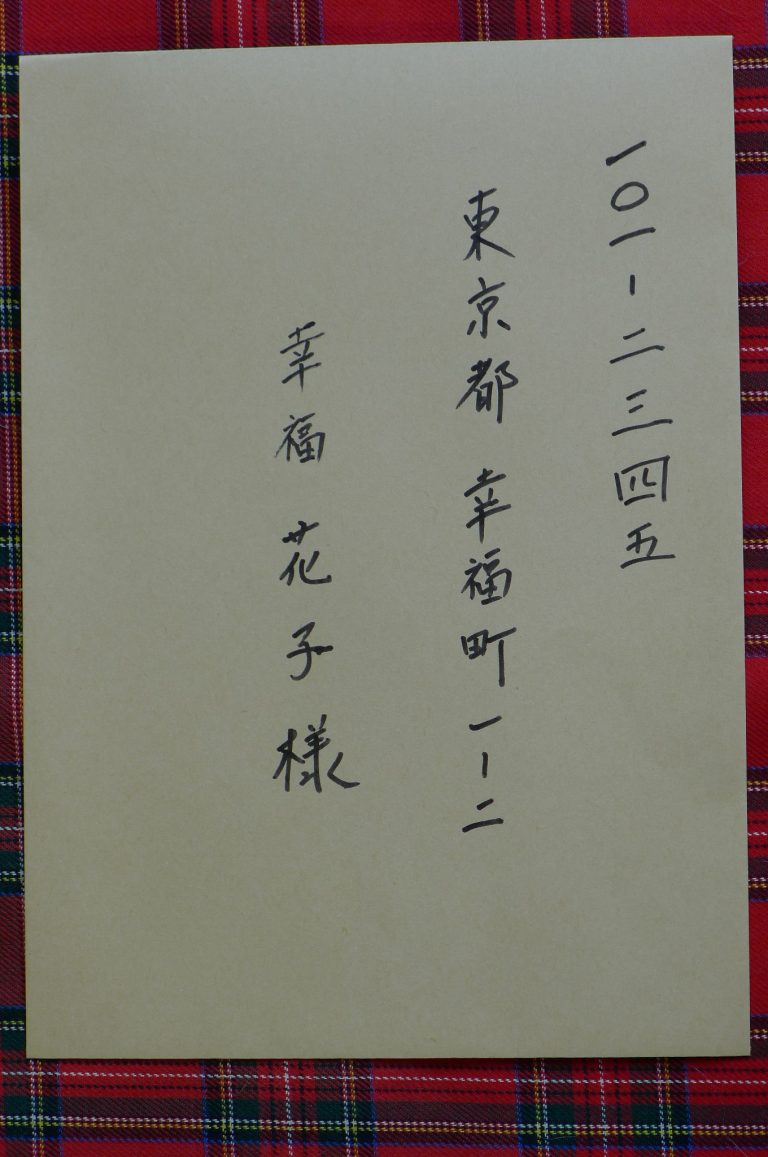 一〇一-二三四五
東京都 幸福町一-二
幸福 花子様